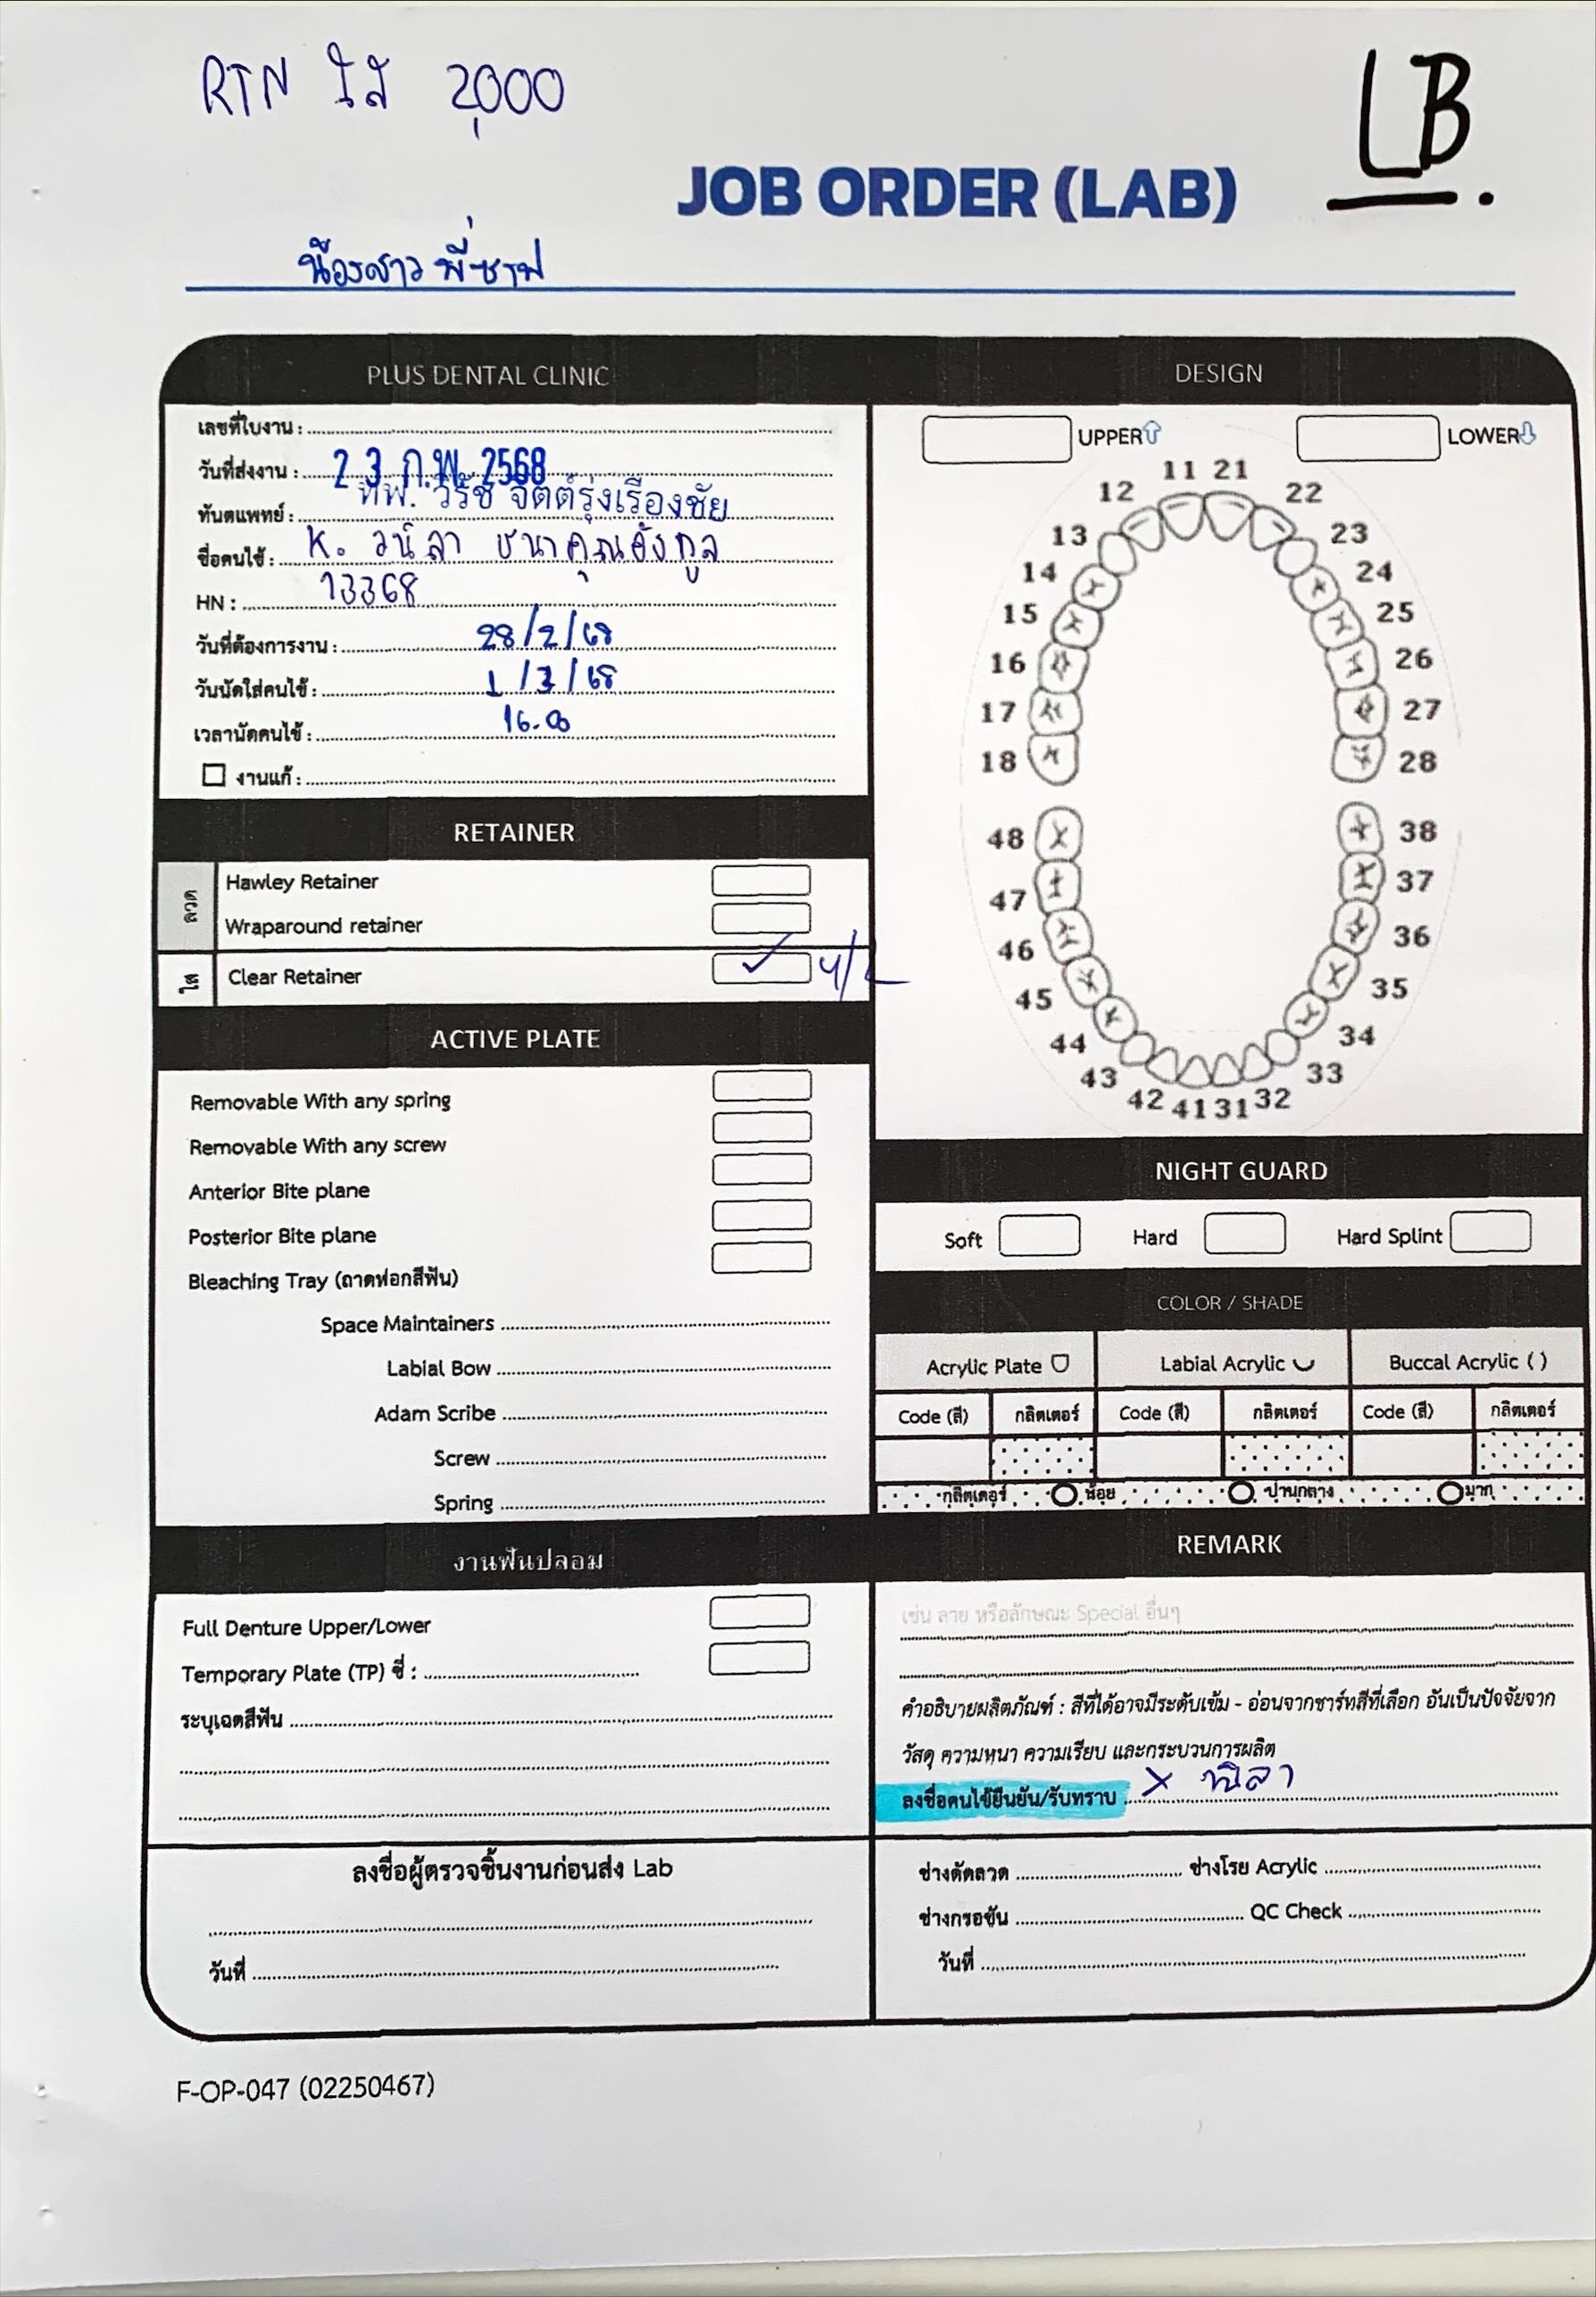 RTN ใส 2,000
LB
JOB ORDER (LAB)
น้องสาว พี่ซาฟ
PLUS DENTAL CLINIC
เลขที่ใบงาน :
วันที่ส่งงาน : 23 ก.พ. 2568
ทันตแพทย์ : ทพ. วิรัช จิตต์รุ่งเรืองชัย
ชื่อคนไข้ : K. วนิลา ชนาคุณอังกูล
HN : 13368
วันที่ต้องการงาน : 28/2/68
วันนัดใส่คนไข้ : 1/3/68
เวลานัดคนไข้ : 16.00
งานแก้ :
RETAINER
ลวด
Hawley Retainer
Wraparound retainer
ใส
Clear Retainer ✓ U/L
ACTIVE PLATE
Removable With any spring
Removable With any screw
Anterior Bite plane
Posterior Bite plane
Bleaching Tray (ถาดฟอกสีฟัน)
Space Maintainers
Labial Bow
Adam Scribe
Screw
Spring
งานฟันปลอม
Full Denture Upper/Lower
Temporary Plate (TP) ซี่ :
ระบุเฉดสีฟัน
ลงชื่อผู้ตรวจชิ้นงานก่อนส่ง Lab
วันที่
DESIGN
UPPER LOWER
11 21
12 22
13 23
14 24
15 25
16 26
17 27
18 28
48 38
47 37
46 36
45 35
44 34
43 33
42 41 31 32
NIGHT GUARD
Soft Hard Hard Splint
COLOR / SHADE
Acrylic Plate Labial Acrylic Buccal Acrylic ( )
Code (สี) กลิตเตอร์ Code (สี) กลิตเตอร์ Code (สี) กลิตเตอร์
กลิตเตอร์ น้อย ปานกลาง มาก
REMARK
เช่น ลาย หรือลักษณะ Special อื่นๆ
คำอธิบายผลิตภัณฑ์ : สีที่ได้อาจมีระดับเข้ม - อ่อนจากชาร์ทสีที่เลือก อันเป็นปัจจัยจาก
วัสดุ ความหนา ความเรียบ และกระบวนการผลิต
ลงชื่อคนไข้ยืนยัน/รับทราบ X วนิลา
ช่างดัดลวด ช่างโรย Acrylic
ช่างกรอขัน QC Check
วันที่
F-OP-047 (02250467)